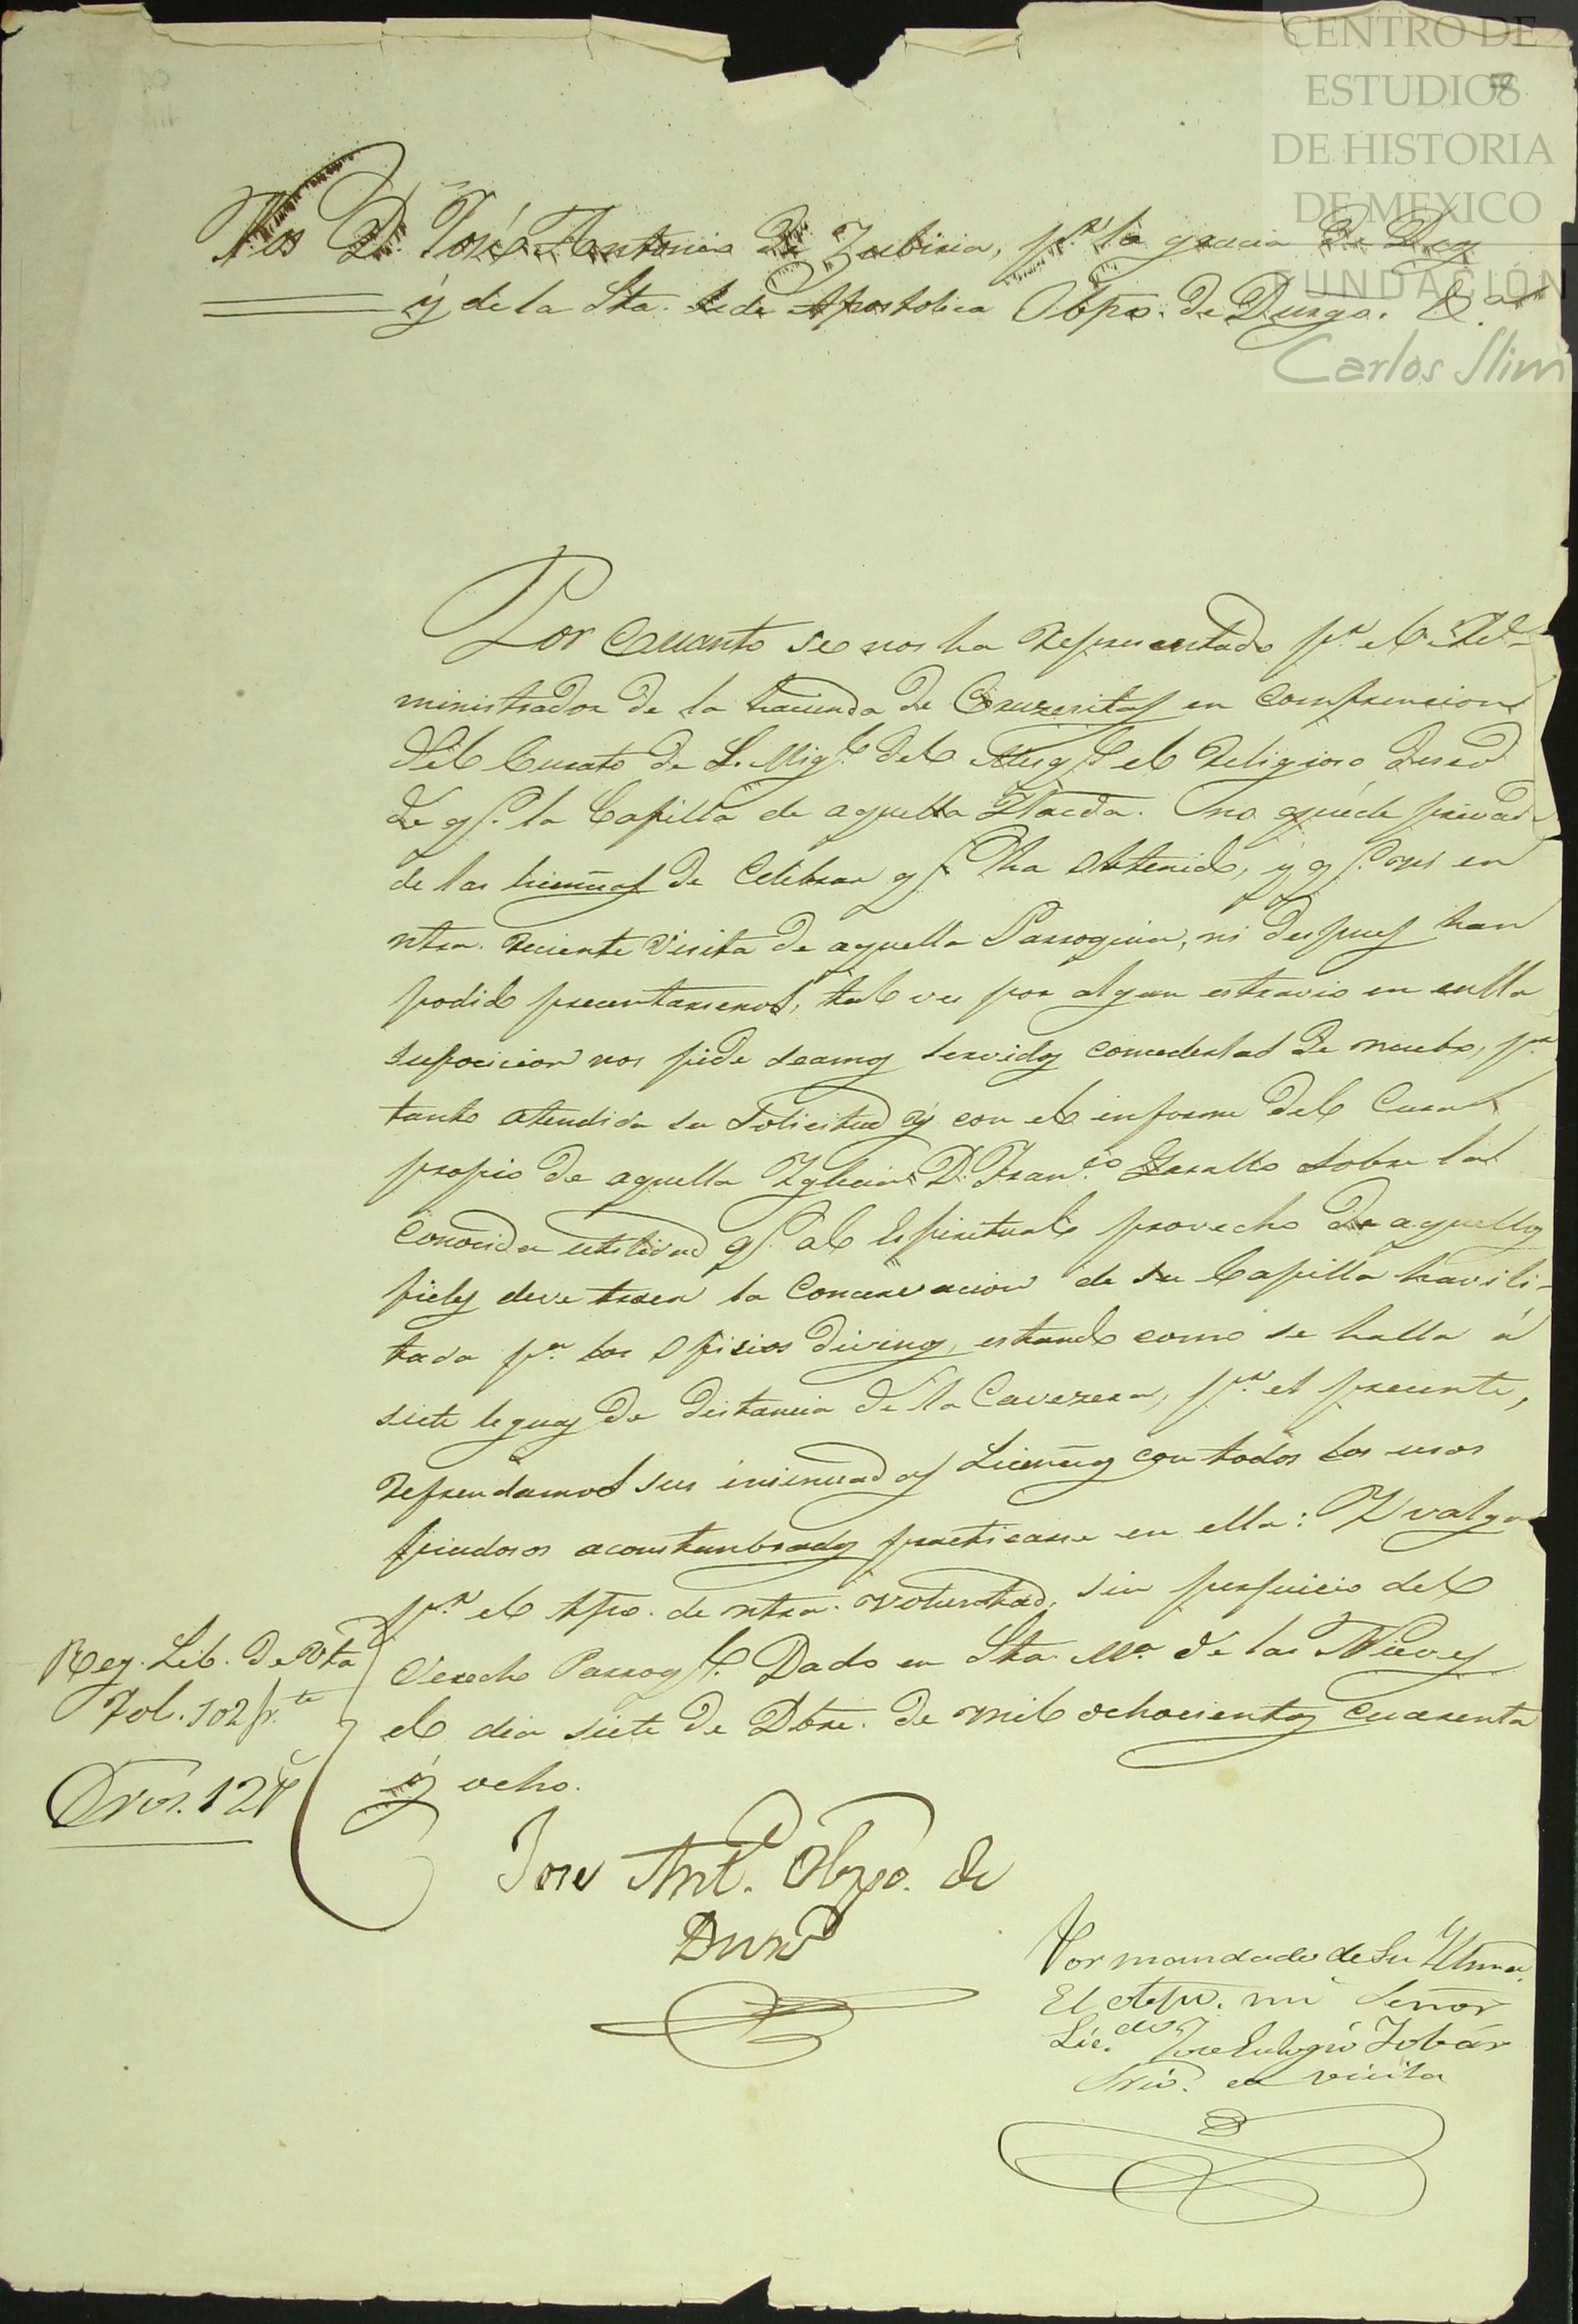 CENTRO DE
ESTUDIOS
DE HISTORIA
DE MEXICO
FUNDACIÓN
Carlos Slim
Nos D. José Antonio de Zubiria, pr. la gracia de Dios
y de la Sta. Sede Apostolica Obpo. de Durgo. &a
Por Cuanto se nos ha representado pr. el Ad-
ministrador de la hacienda de Cruzesitas en comprencion
del Curato de S. Migl. del Mezql. el religioso deseo
de qe. la Capilla de aquella Hacda. no quede privada
de las licencias de Celebrar qe. ha obtenido, y qe. en
ntra. reciente Visita de aquella Parroquia, ni despues han
podido precentarsenos, tal ves por algun estravio en culla
suposicion nos pide seamos servidos concederlas de nuebo, pr.
tanto atendida su Solicitud y con el informe del Cura
propio de aquella Yglecia D. Franco. sobre la
conocida utilidad qe. al Espiritual provecho de aquellos
fieles deve traer la Concervacion de su Capilla havili-
tada pa. los Ofisios divinos, estando como se halla á
siete leguas de distancia de la Cavezera, pr. el precente,
refrendamos sus insinuadas Licencias con todos los usos
piadosos acoustunbrados practicarse en ella: Y valga
pr. el tpo. de ntra. voluntad, sin perjuicio del
derecho Parroql. Dado en Sta. Ma. de las Nieves
el dia siete de Dbre. de mil ochocientos cuarenta
y ocho.
Reg. Lib. de Vta
Fol. 102 fr.te
Dros. 12
Jose Ant. Obpo. de
Durº
Por mandado de Su Yllma.
El Obpo. mi Señor
Licdo. Jose Eulogio Tobár
Srio. en visita